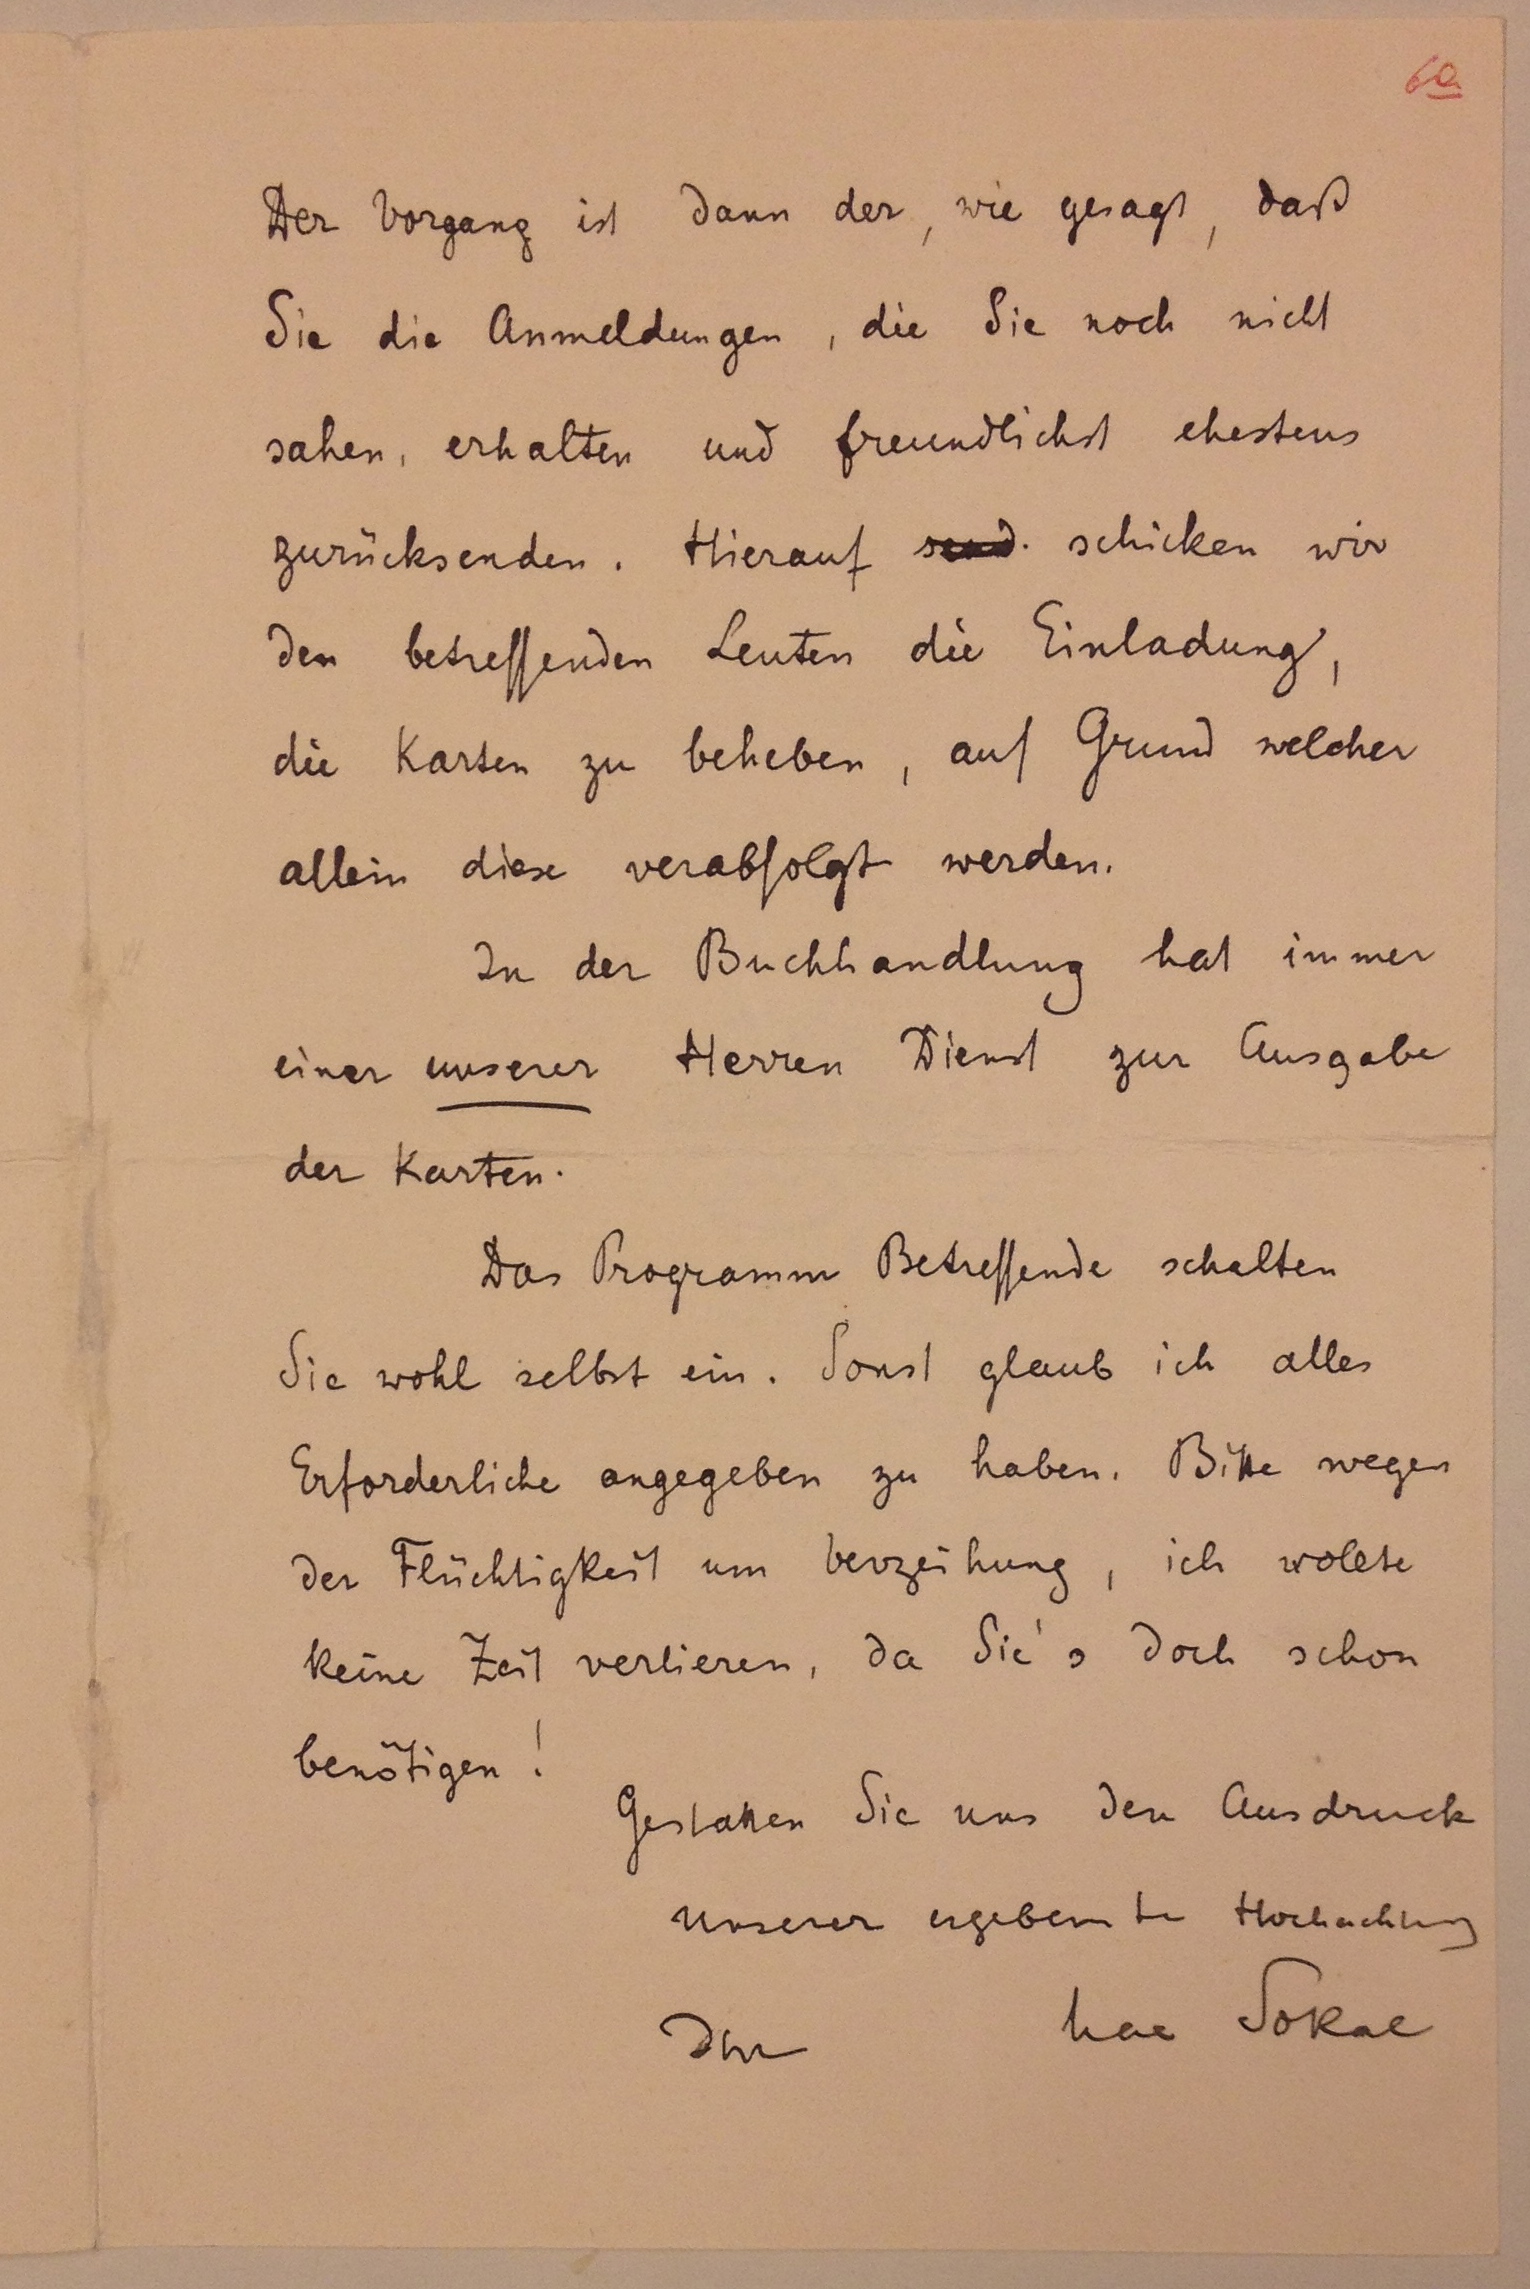 60
Der Vorgang ist dann der, wie gesagt, daß
Sie die Anmeldungen, die Sie noch nicht
sahen, erhalten und freundlichst ehestens
zurücksenden. Hierauf send. schicken wir
den betreffenden Leuten die Einladung,
die Karten zu beheben, auf Grund welcher
allein diese verabfolgt werden.
In der Buchhandlung hat immer
einer unserer Herren Dienst zur Ausgabe
der Karten.
Das Programm Betreffende schalten
Sie wohl selbst ein. Sonst glaub ich alles
Erforderliche angegeben zu haben. Bitte wegen
der Flüchtigkeit um Verzeihung, ich wollte
keine Zeit verlieren, da Sie's doch schon
benötigen!
Gestatten Sie uns den Ausdruck
unserer ergebenste Hochachtung
Ihr Sokal